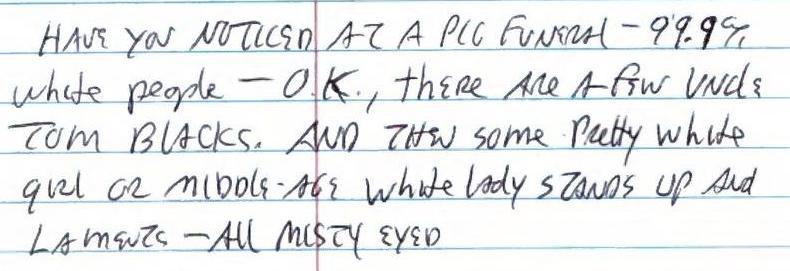 HAVE YOU NOTICED AT A PIG FUNERAL - 99.9%
white people - O.K., thERE ARE A FEW UNCLE
TOM BLACKS. AND THEN some Pretty white
girl OR MIDDLE-AGE white lady STANDS UP And
LAMENTS - All MISTY EYED